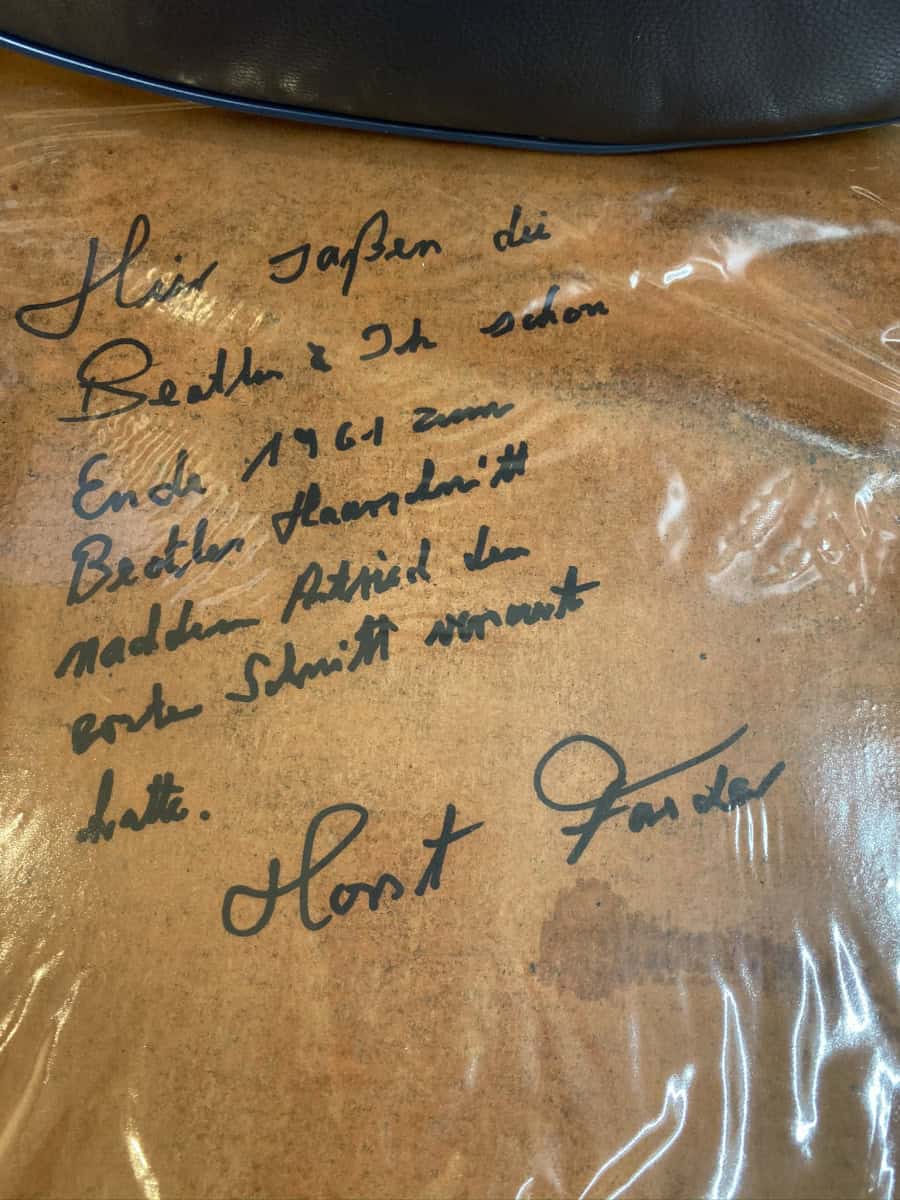 Hier saßen die
Beatles & Ich schon
Ende 1961 zum
Beatles Haarschnitt
nachdem Astried den
ersten Schnitt versaut
hatte.
Horst Fascher